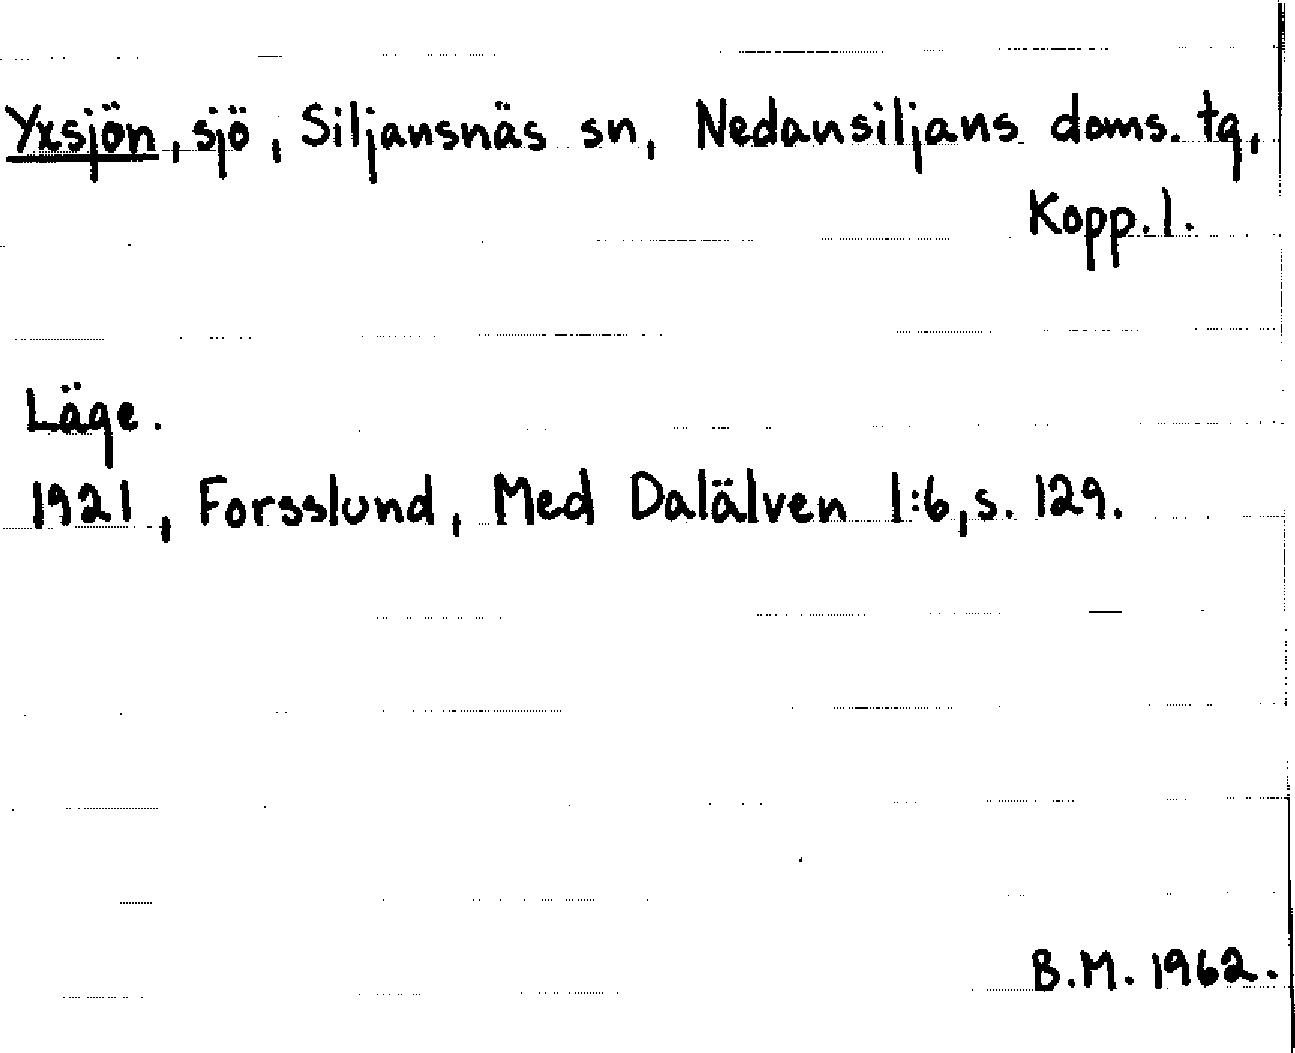 Yxsjön, sjö, Siljansnäs sn, Nedansiljans doms. tg,
Kopp. l.
Läge.
1921, Forsslund, Med Dalälven 1:6, s. 129.
B.M. 1962.